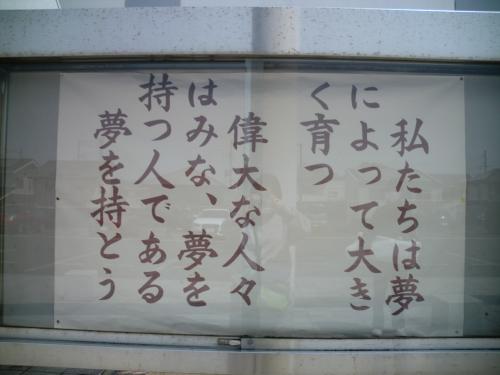 私たちは夢
によって大き
く育つ
偉大な人々
はみな、夢を
持つ人である
夢を持とう